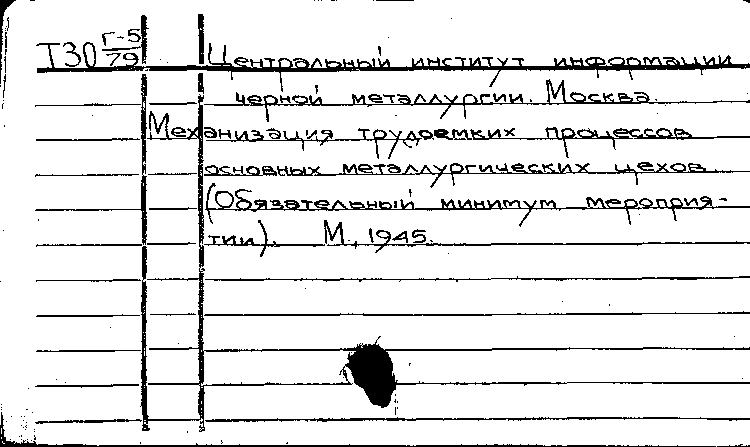 Т30 Г-5/79 Центральный институт информации
черной металлургии. Москва.
Механизация трудоемких процессов
основных металлургических цехов
(Обязательный минимум мероприя-
тии). М., 1945.